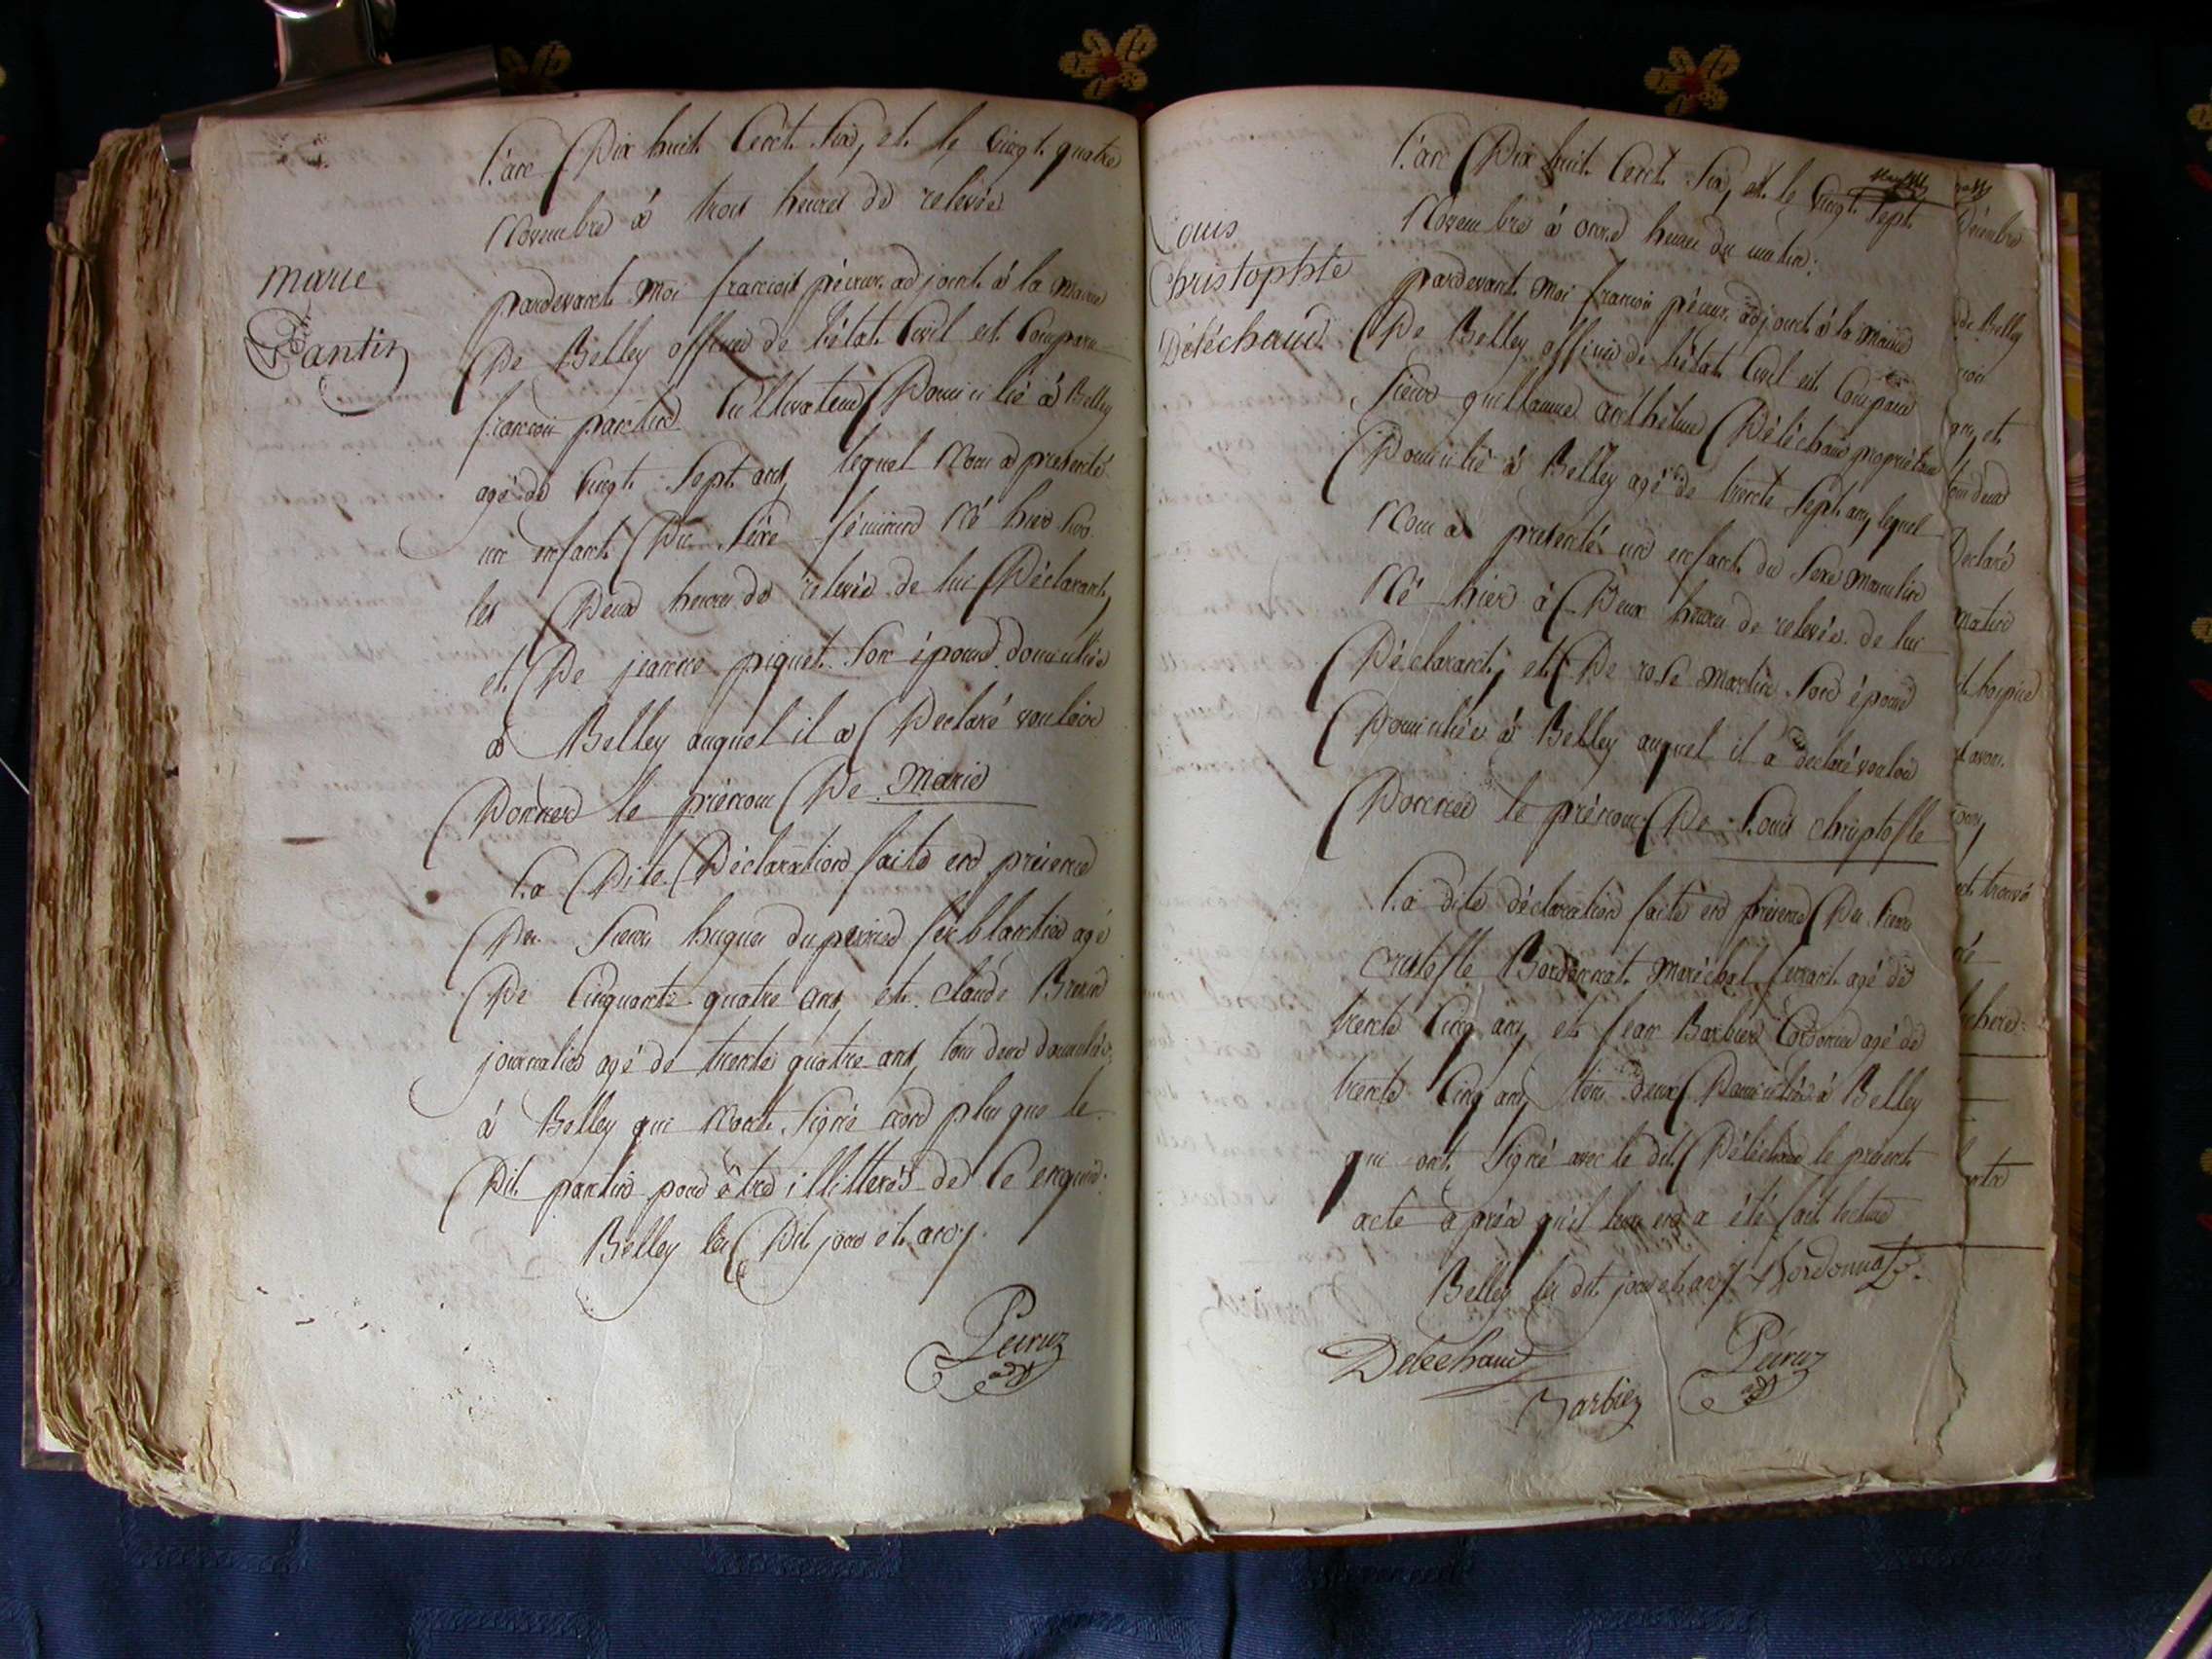 L'an Dix huit Cent Six, et le vingt quatre
Novembre à trois heures de relevée
marie
Pantin
pardevant moi francois péeruz adjoint à la Mairie
De Belley officier de l'état Civil est Comparu
francois pantin Cultivateur Domicilié à Belley
agé de vingt Sept ans, lequel Nous a presenté
un enfant Du Sexe féminin Né hier Sur
les Deux heures de relevée de lui Déclarant,
et De jeanne piquet Son épouse domiciliée
à Belley auquel il a Declaré vouloir
Donner le prénom De Marie
La Dite Déclaration faite en présence
Des Sieurs hugues duperrier ferblantier agé
De Cinquante quatre ans et claude Brun
journalier agé de trente quatre ans, tous deux domiciliés
à Belley qui n'ont Signé non plus que le
Dit pantin pour être illitterés de ce enquis.
Belley les Dit jour et an ./.
Péeruz
adj
L'an Dix huit Cent Six, et le vingt Sept
Novembre à onze heures du matin.
Louis
Christophle
Déléchaud
pardevant moi francois péeruz adjoint à la Mairie
De Belley officier de l'état Civil est Comparu
Sieur guillaume anthelme Déléchaud propriétaire
Domicilié à Belley agé de trente Sept ans, lequel
Nous a presenté un enfant du Sexe Masculin
Né hier à Deux heures de relevée de lui
Déclarant, et De rose Martin Son épouse
Domiciliée à Belley auquel il a declaré vouloir
Donner le prénom De Louis christofle
La dite déclaration faite en présence Des Sieurs
cristofle Bordonnat Maréchal ferrant agé de
trente Cinq ans et jean Barbier Cordonnier agé de
trente Cinq ans, tous deux Domiciliés à Belley
qui ont Signé avec le dit Déléchaud le présent
acte après qu'il leur en a été fait lecture
Belley les dit jour et an ./. Bordonnat
Delechaud
Péeruz
Barbier
adj
Décembre
de Belley
ans, et
tous deux
Declaré
matin
et hospice
et avons
trouvé